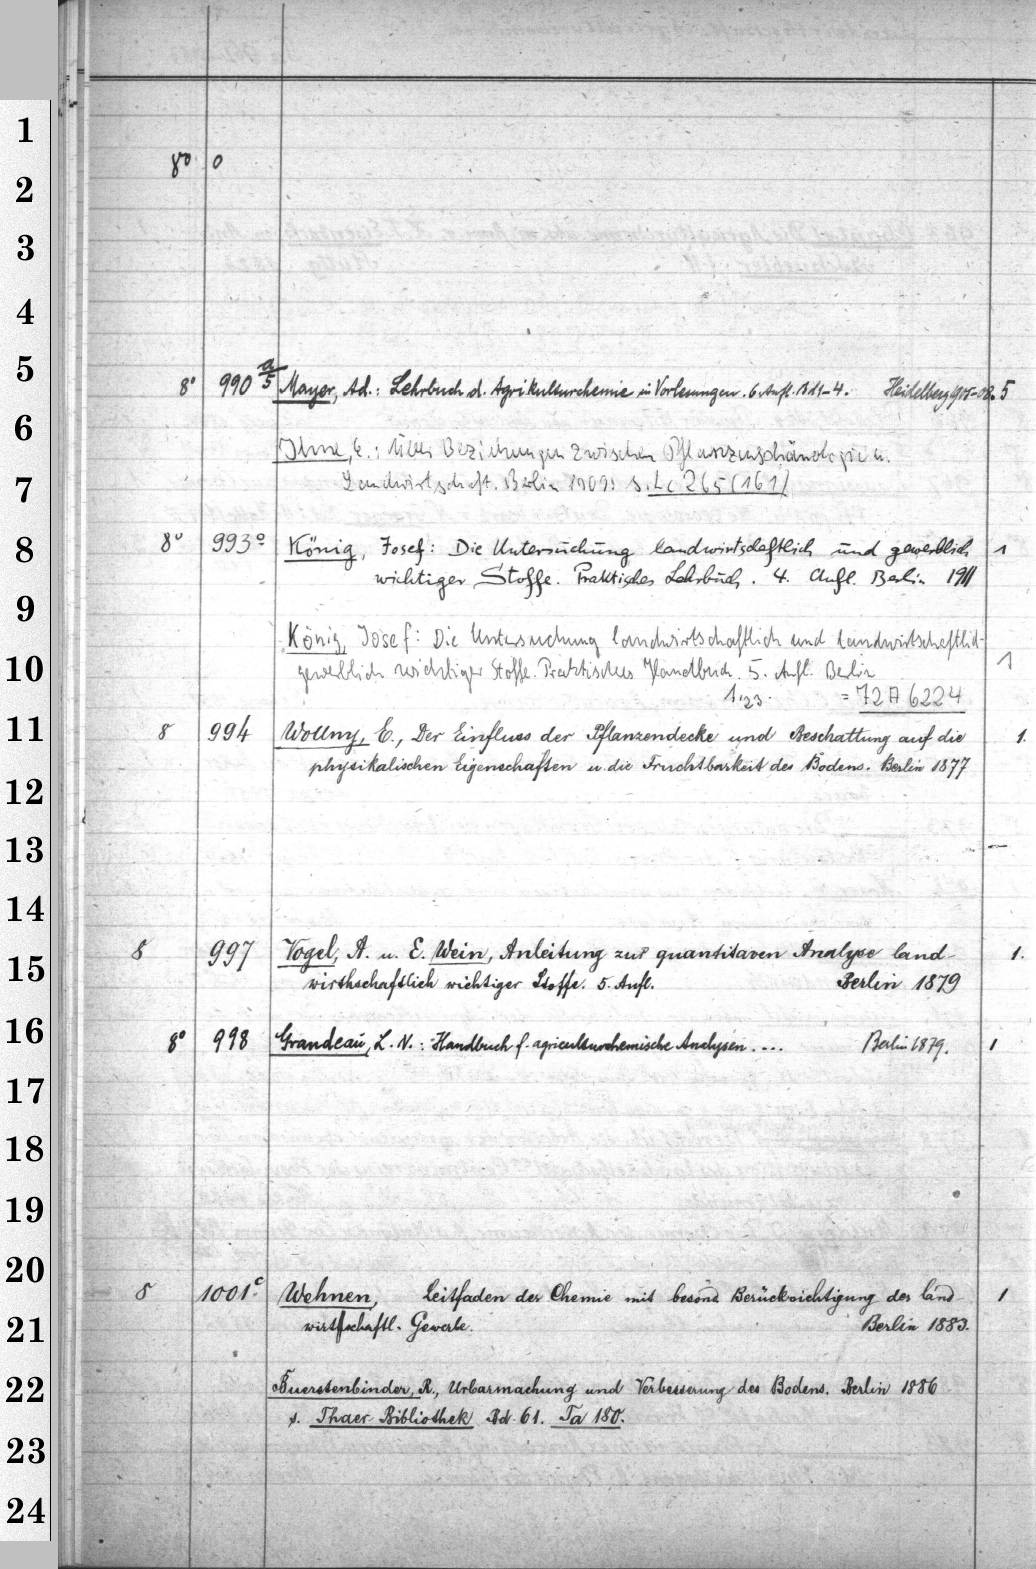 1
8° 0
2
3
4
5
8° 990 a/5 Mayer, Ad.: Lehrbuch d. Agrikulturchemie in Vorlesungen. 6. Aufl. Bd 1-4. Heidelberg 1905-02. 5
6
Ihne, E.: Über Beziehungen zwischen Pflanzenphänologie u.
7
Landwirtschaft. Berlin 1909: s. Lc 265 (161)
8
8° 993° König, Josef: Die Untersuchung landwirtschaftlich und gewerblich 1
wichtiger Stoffe. Praktisches Lehrbuch. 4. Aufl. Berlin 1911
9
König, Josef: Die Untersuchung landwirtschaftlich und landwirtschaftlich-
10
gewerblich wichtiger Stoffe. Praktisches Handbuch. 5. Aufl. Berlin 1
1923. = 72 A 6224
11
8 994 Wollny, E., Der Einfluss der Pflanzendecke und Beschattung auf die 1.
physikalischen Eigenschaften u. die Fruchtbarkeit des Bodens. Berlin 1877
12
13
14
8 997 Vogel, A. u. E. Wein, Anleitung zur quantitaven Analyse land- 1.
15
wirthschaftlich wichtiger Stoffe. 5. Aufl. Berlin 1879
16
8° 998 Grandeau, L. N.: Handbuch f. agriculturchemische Analysen. ... Berlin 1879. 1
17
18
19
20
8 1001c Wehnen, Leitfaden der Chemie mit besond Berücksichtigung der land 1
21
wirthschaftl. Gewerbe. Berlin 1883.
22
Fuerstenbinder, R., Urbarmachung und Verbesserung des Bodens. Berlin 1886
s. Thaer Bibliothek Bd. 61. Ta 180.
23
24